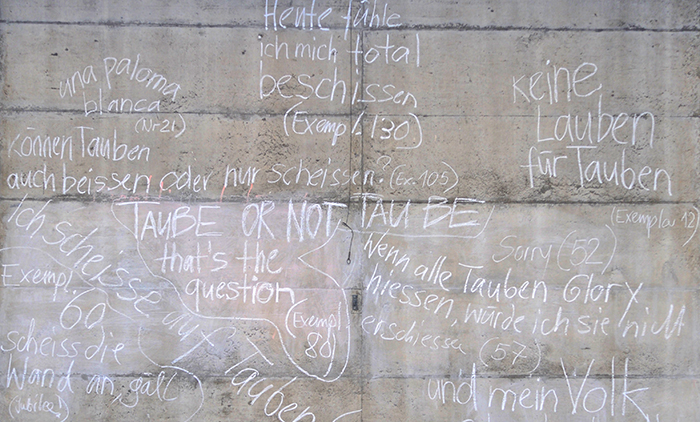 Heute fühle
ich mich total
beschissen
(Exempl. 130)
una paloma
blanca
(Nr 21)
Keine
Lauben
für Tauben
(Exemplar 12)
können Tauben
auch beissen oder nur scheissen? (Ex. 105)
TAUBE OR NOT TAU BE
that's the
question
(Exempl.
80)
Ich scheisse auf Tauben
Sorry (52)
Wenn alle Tauben Glory
hiessen, würde ich sie nicht
erschiessen
(57)
Exempl.
60
scheiss die
Wand an, gäll
(Jubilea!)
und mein Volk